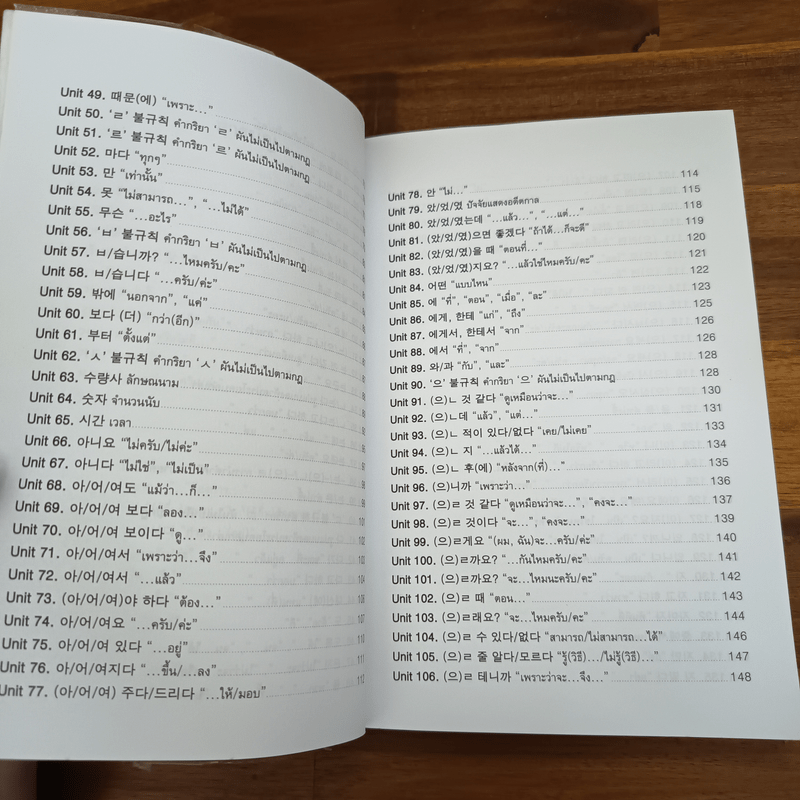 Unit 49. 때문(에) “เพราะ…”
Unit 50. ‘ㄹ’ 불규칙 คำกริยา ‘ㄹ’ ผันไม่เป็นไปตามกฎ
Unit 51. ‘르’ 불규칙 คำกริยา ‘르’ ผันไม่เป็นไปตามกฎ
Unit 52. 마다 “ทุกๆ”
Unit 53. 만 “เท่านั้น”
Unit 54. 못 “ไม่สามารถ…”, “…ไม่ได้”
Unit 55. 무슨 “…อะไร”
Unit 56. ‘ㅂ’ 불규칙 คำกริยา ‘ㅂ’ ผันไม่เป็นไปตามกฎ
Unit 57. ㅂ/습니까? “…ไหมครับ/คะ”
Unit 58. ㅂ/습니다 “…ครับ/ค่ะ”
Unit 59. 밖에 “นอกจาก”, “แค่”
Unit 60. 보다 (더) “กว่า(อีก)”
Unit 61. 부터 “ตั้งแต่”
Unit 62. ‘ㅅ’ 불규칙 คำกริยา ‘ㅅ’ ผันไม่เป็นไปตามกฎ
Unit 63. 수량사 ลักษณนาม
Unit 64. 숫자 จำนวนนับ
Unit 65. 시간 เวลา
Unit 66. 아니요 “ไม่ครับ/ไม่ค่ะ”
Unit 67. 아니다 “ไม่ใช่”, “ไม่เป็น”
Unit 68. 아/어/여도 “แม้ว่า…ก็…”
Unit 69. 아/어/여 보다 “ลอง…”
Unit 70. 아/어/여 보이다 “ดู…”
Unit 71. 아/어/여서 “เพราะว่า…จึง”
Unit 72. 아/어/여서 “…แล้ว”
Unit 73. (아/어/여)야 하다 “ต้อง…”
Unit 74. 아/어/여요 “…ครับ/ค่ะ”
Unit 75. 아/어/여 있다 “…อยู่”
Unit 76. 아/어/여지다 “…ขึ้น/…ลง”
Unit 77. (아/어/여) 주다/드리다 “…ให้/มอบ”
Unit 78. 안 “ไม่…” 114
Unit 79. 았/었/였 ปัจจัยแสดงอดีตกาล 115
Unit 80. 았/었/였는데 “…แล้ว…”, “…แต่…” 118
Unit 81. (았/었/였)으면 좋겠다 “ถ้าได้…ก็จะดี” 119
Unit 82. (았/었/였)을 때 “ตอนที่…” 120
Unit 83. (았/었/였)지요? “…แล้วใช่ไหมครับ/คะ” 121
Unit 84. 어떤 “แบบไหน” 122
Unit 85. 에 “ที่”, “ตอน”, “เมื่อ”, “ละ” 123
Unit 86. 에게, 한테 “แก่”, “ถึง” 125
Unit 87. 에게서, 한테서 “จาก” 126
Unit 88. 에서 “ที่”, “จาก” 126
Unit 89. 와/과 “กับ”, “และ” 128
Unit 90. ‘으’ 불규칙 คำกริยา ‘으’ ผันไม่เป็นไปตามกฎ 128
Unit 91. (으)ㄴ 것 같다 “ดูเหมือนว่าจะ…” 130
Unit 92. (으)ㄴ데 “แล้ว”, “แต่…” 131
Unit 93. (으)ㄴ 적이 있다/없다 “เคย/ไม่เคย” 133
Unit 94. (으)ㄴ 지 “…แล้วได้…” 134
Unit 95. (으)ㄴ 후(에) “หลังจาก(ที่)…” 135
Unit 96. (으)니까 “เพราะว่า…” 136
Unit 97. (으)ㄹ 것 같다 “ดูเหมือนว่าจะ…”, “คงจะ…” 137
Unit 98. (으)ㄹ 것이다 “จะ…”, “คงจะ…” 139
Unit 99. (으)ㄹ게요 “(ผม, ฉัน)จะ…ครับ/ค่ะ” 140
Unit 100. (으)ㄹ까요? “…กันไหมครับ/คะ” 141
Unit 101. (으)ㄹ까요? “จะ…ไหมนะครับ/คะ” 142
Unit 102. (으)ㄹ 때 “ตอน…” 143
Unit 103. (으)ㄹ래요? “จะ…ไหมครับ/คะ” 144
Unit 104. (으)ㄹ 수 있다/없다 “สามารถ/ไม่สามารถ…ได้” 146
Unit 105. (으)ㄹ 줄 알다/모르다 “รู้(วิธี)…/ไม่รู้(วิธี)…” 147
Unit 106. (으)ㄹ 테니까 “เพราะว่าจะ…จึง…” 148